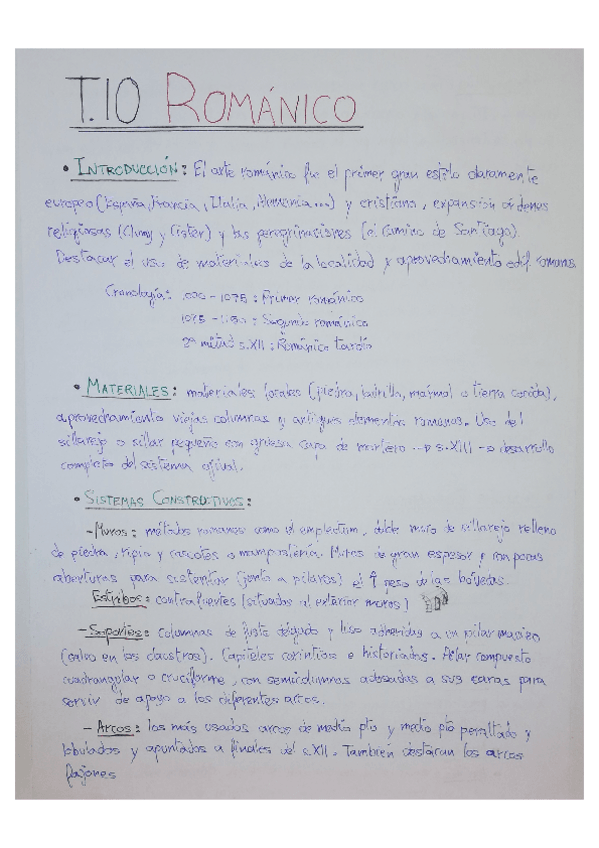 T.10 ROMÁNICO
• INTRODUCCIÓN: El arte románico fue el primer gran estilo claramente
europeo (España, Francia, Italia, Alemania...) y cristiano, expansión órdenes
religiosas (Cluny y Císter) y las peregrinaciones (el Camino de Santiago).
Destacar el uso de materiales de la localidad y aprovechamiento edif. romanos.
Cronología: 1000 - 1075: Primer románico
1075 - 1150: Segundo románico
2ª mitad s.XII: Románico Tardío
• MATERIALES: materiales locales (piedra, ladrillo, mármol o tierra cocida),
aprovechamiento viejas columnas y antiguos elementos romanos. Uso del
sillarejo o sillar pequeño con gruesa capa de mortero --> s.XIII -> desarrollo
completo del sistema ojival.
• SISTEMAS CONSTRUCTIVOS:
- Muros: métodos romanos como el emplectum, doble muro de sillarejo relleno
de piedra, ripio y cascotes o mampostería. Muros de gran espesor y con pocas
aberturas para sustentar (junto a pilares) el ↑ peso de las bóvedas.
Estribos: contrafuertes (situados al exterior muros)
- Soportes: columnas de fuste delgado y liso adheridas a un pilar macizo
(salvo en los claustros). Capiteles corintios e historiados. Pilar compuesto
cuadrangular o cruciforme, con semicolumnas adosadas a sus caras para
servir de apoyo a los diferentes arcos.
- Arcos: los más usados arcos de medio pto y medio pto peraltado y
lobulados y apuntados a finales del s.XII. También destacan los arcos
fajones